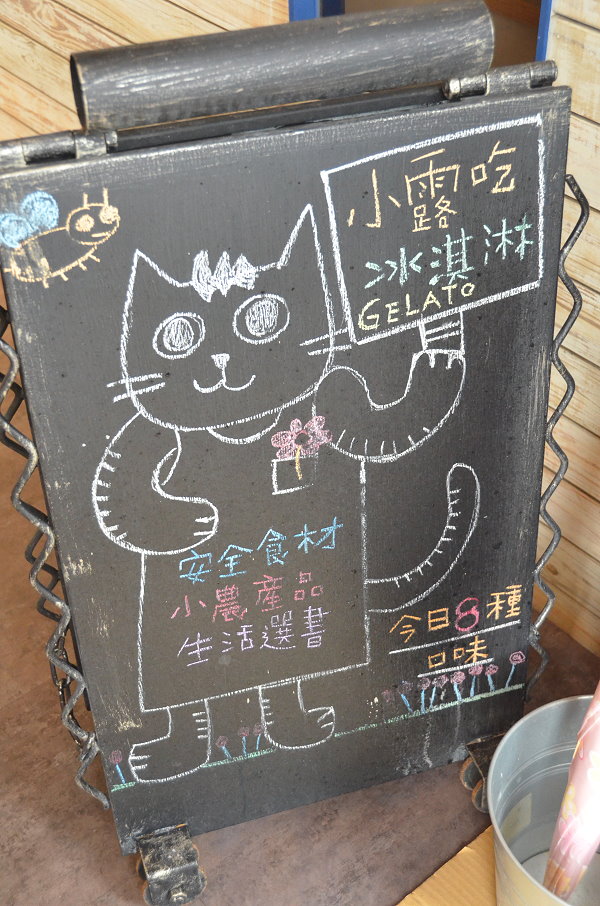 小露吃
冰淇淋
GELATO
安全食材
小農產品
生活選書
今日8種
口味